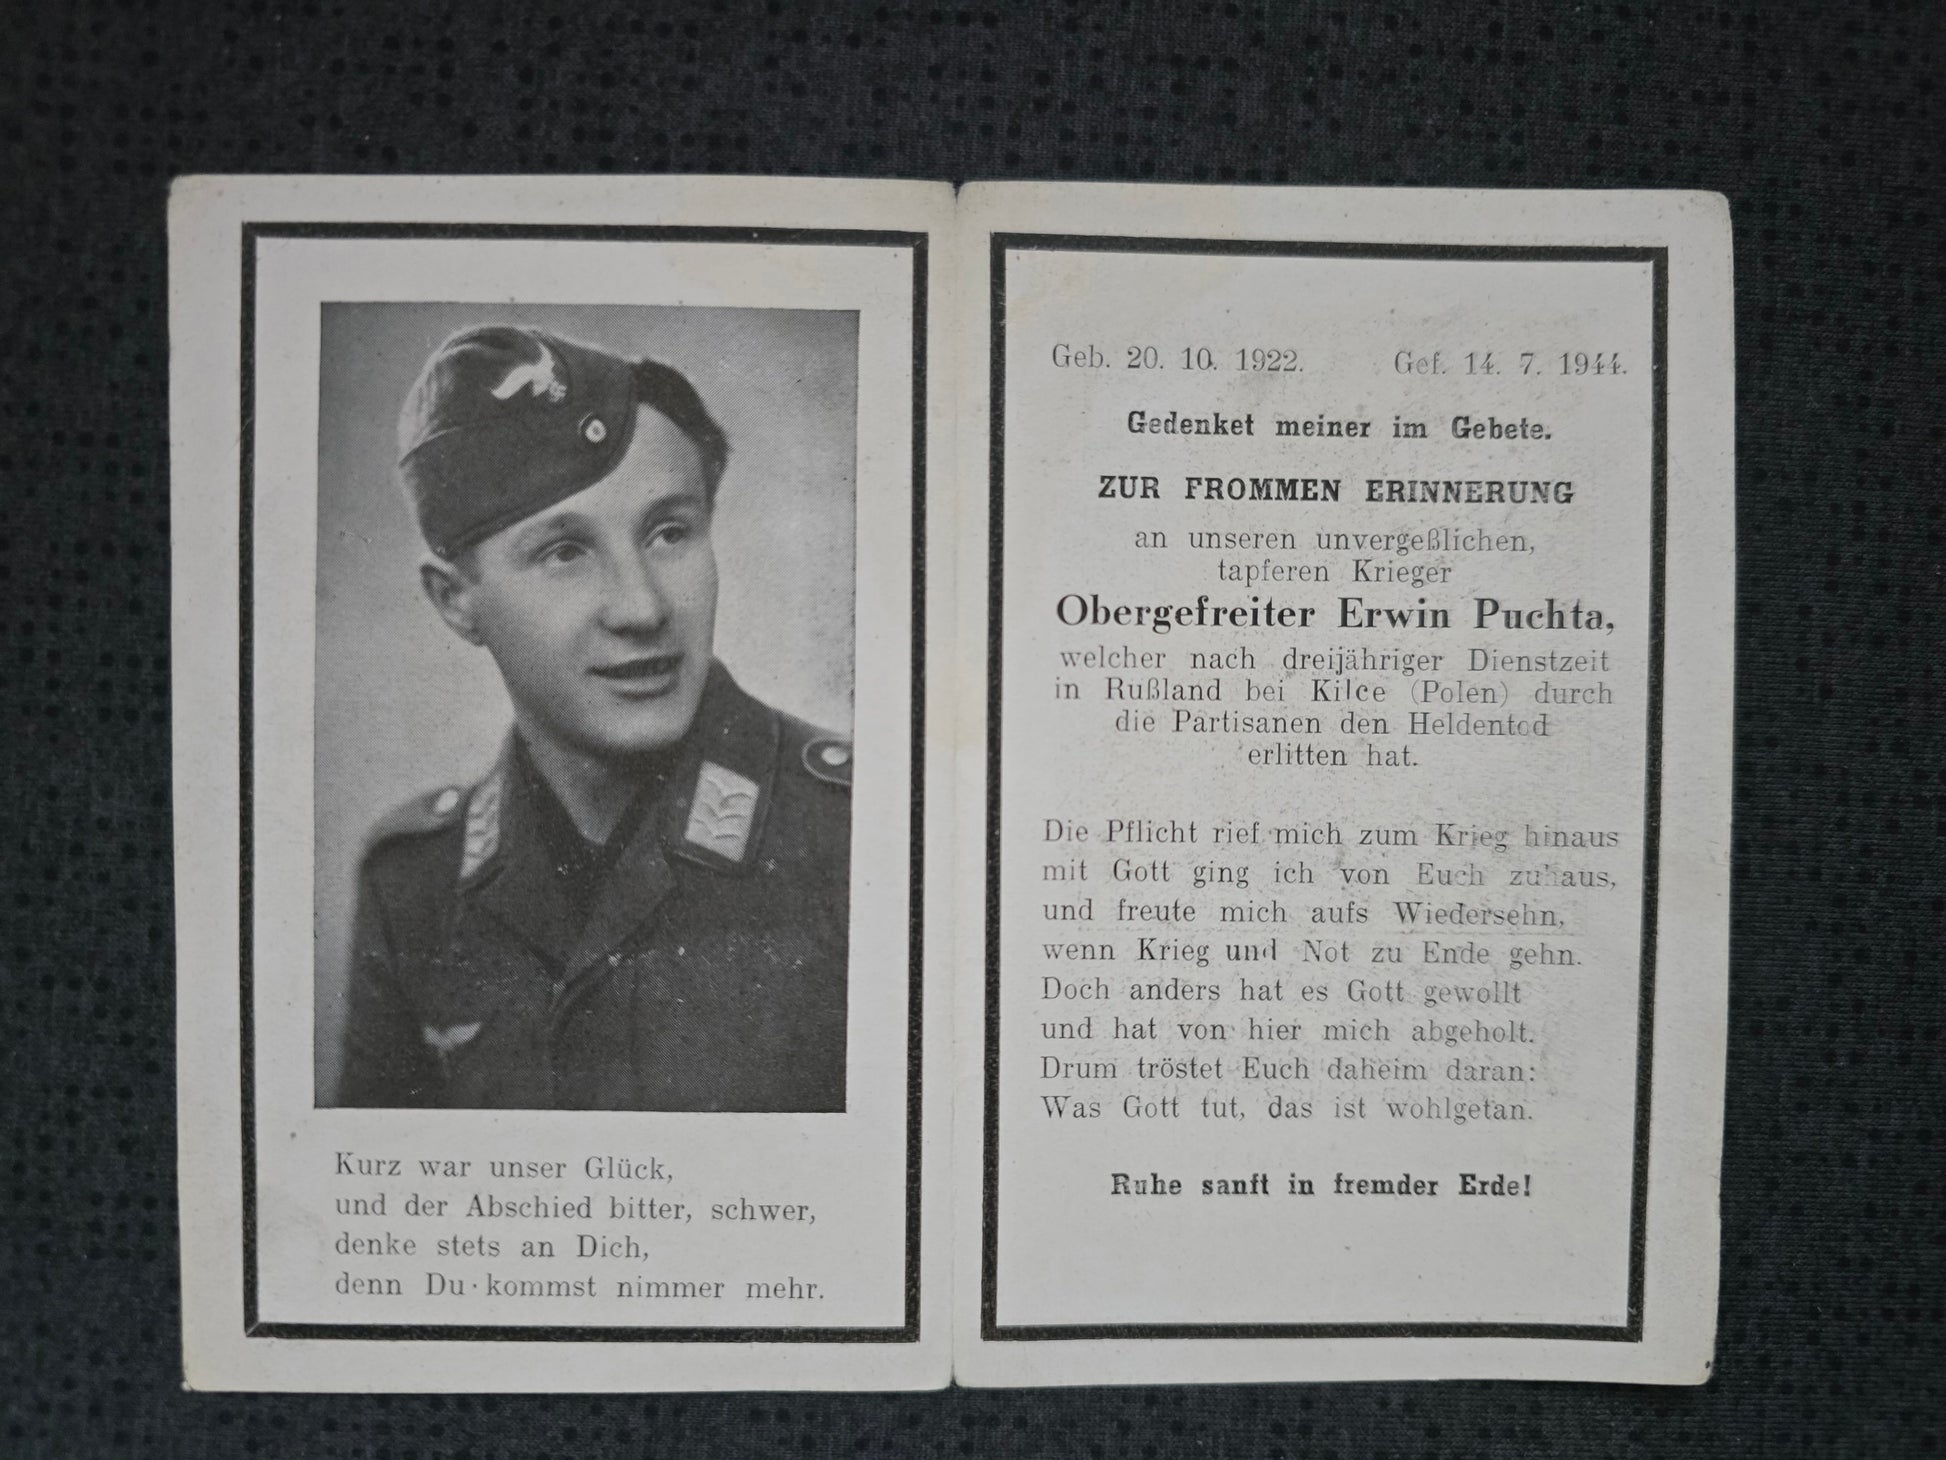 Kurz war unser Glück,
und der Abschied bitter, schwer,
denke stets an Dich,
denn Du kommst nimmer mehr.
Geb. 20. 10. 1922. Gef. 14. 7. 1944.
Gedenket meiner im Gebete.
ZUR FROMMEN ERINNERUNG
an unseren unvergeßlichen,
tapferen Krieger
Obergefreiter Erwin Puchta,
welcher nach dreijähriger Dienstzeit
in Rußland bei Kilce (Polen) durch
die Partisanen den Heldentod
erlitten hat.
Die Pflicht rief mich zum Krieg hinaus
mit Gott ging ich von Euch zuhaus,
und freute mich aufs Wiedersehn,
wenn Krieg und Not zu Ende gehn.
Doch anders hat es Gott gewollt
und hat von hier mich abgeholt.
Drum tröstet Euch daheim daran:
Was Gott tut, das ist wohlgetan.
Ruhe sanft in fremder Erde!